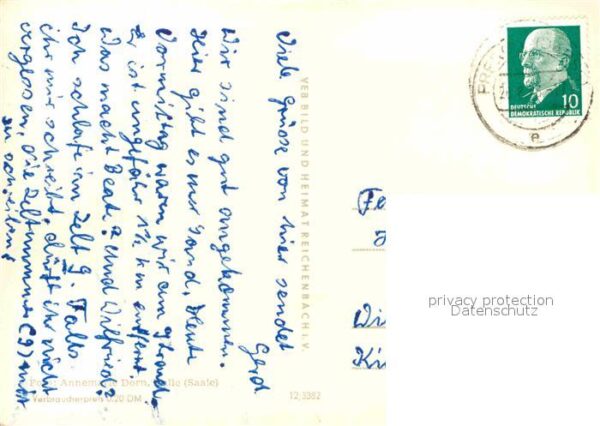 Viele Grüsse von hier sendet
Gerd
Wir sind gut angekommen.
Hier gibt es nur Sand. Heute
Vormittag waren wir am Strand.
Er ist ungefähr 1½ km entfernt.
Was macht Beate? und Wilfried?
Ich schlafe im Zelt 9. Falls
ihr mir schreibt, dürft ihr nicht
vergessen, die Zeltnummer (9) mit
zu schreiben
VEB BILD UND HEIMAT REICHENBACH I. V.
Foto: Annemarie Dorn, Halle (Saale)
Verbraucherpreis 0,20 DM
12,3382
DEUTSCHE
DEMOKRATISCHE REPUBLIK
10
e
privacy protection
Datenschutz